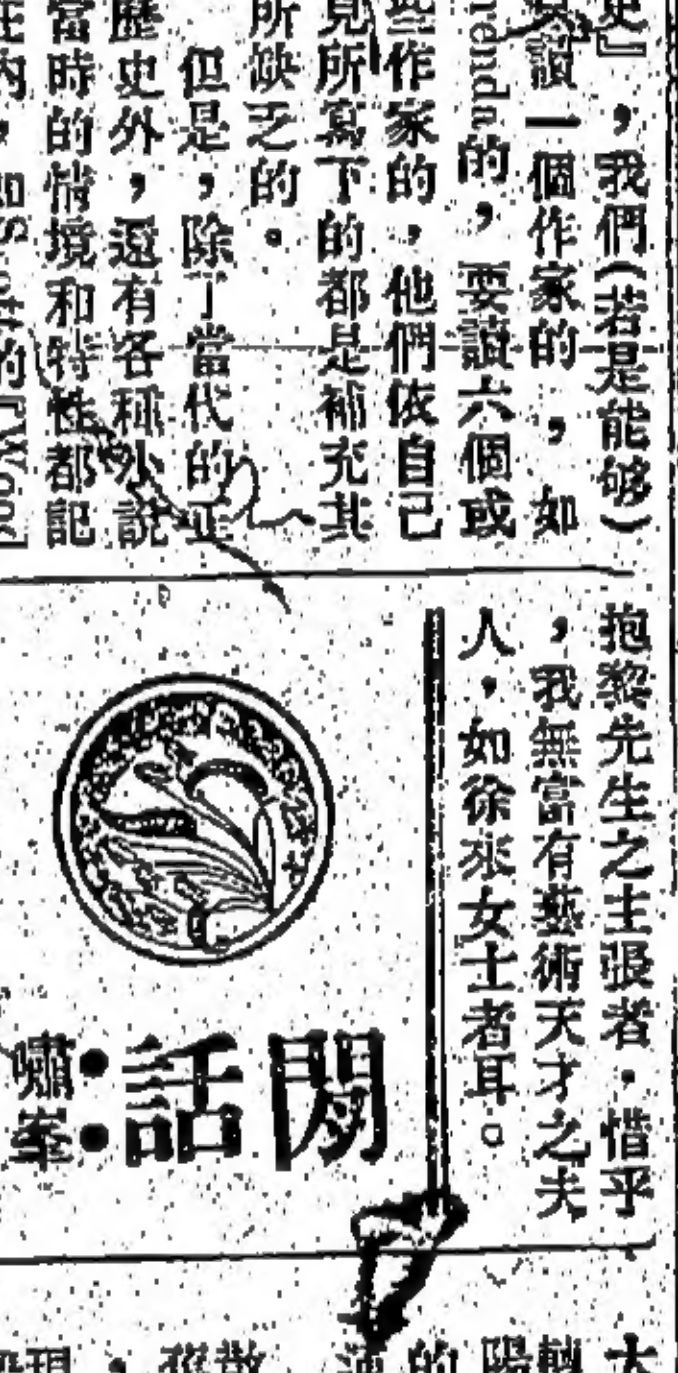 史』，我們(若是能够)
讀一個作家的，如
renda的，要讀六個或
些作家的，他們依自己
見所寫下的都是補充其
所缺乏的。
但是，除了當代的正
歷史外，還有各種小說
當時的情境和特性都記
在內，如Scott的『Wood
抱黎先生之主張者，惜乎
，我無富有藝術天才之夫
人，如徐來女士者耳。
閒話：
嘯峯
大